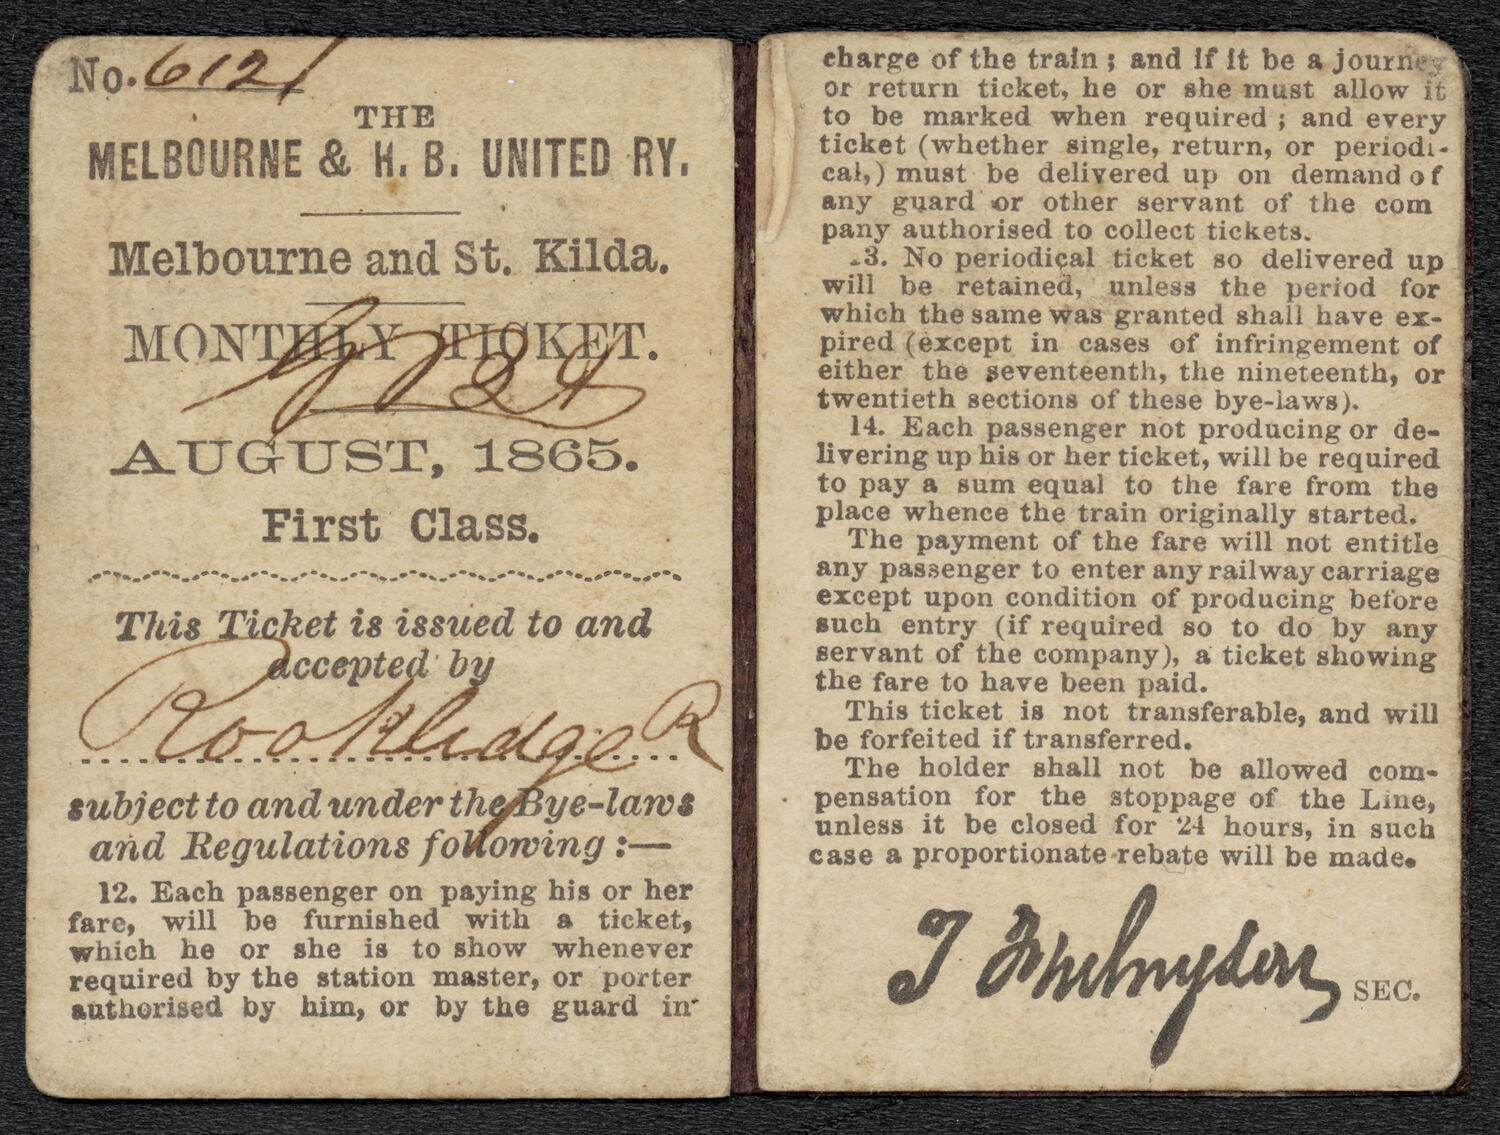 No. 6121
THE
MELBOURNE & H. B. UNITED RY.
Melbourne and St. Kilda.
MONTHLY TICKET.
AUGUST, 1865.
First Class.
This Ticket is issued to and
accepted by
Rookledge R
subject to and under the Bye-laws
and Regulations following :—
12. Each passenger on paying his or her
fare, will be furnished with a ticket,
which he or she is to show whenever
required by the station master, or porter
authorised by him, or by the guard in
charge of the train ; and if it be a journey
or return ticket, he or she must allow it
to be marked when required ; and every
ticket (whether single, return, or periodi-
cal,) must be delivered up on demand of
any guard or other servant of the com
pany authorised to collect tickets.
3. No periodical ticket so delivered up
will be retained, unless the period for
which the same was granted shall have ex-
pired (except in cases of infringement of
either the seventeenth, the nineteenth, or
twentieth sections of these bye-laws).
14. Each passenger not producing or de-
livering up his or her ticket, will be required
to pay a sum equal to the fare from the
place whence the train originally started.
The payment of the fare will not entitle
any passenger to enter any railway carriage
except upon condition of producing before
such entry (if required so to do by any
servant of the company), a ticket showing
the fare to have been paid.
This ticket is not transferable, and will
be forfeited if transferred.
The holder shall not be allowed com-
pensation for the stoppage of the Line,
unless it be closed for 24 hours, in such
case a proportionate rebate will be made.
SEC.